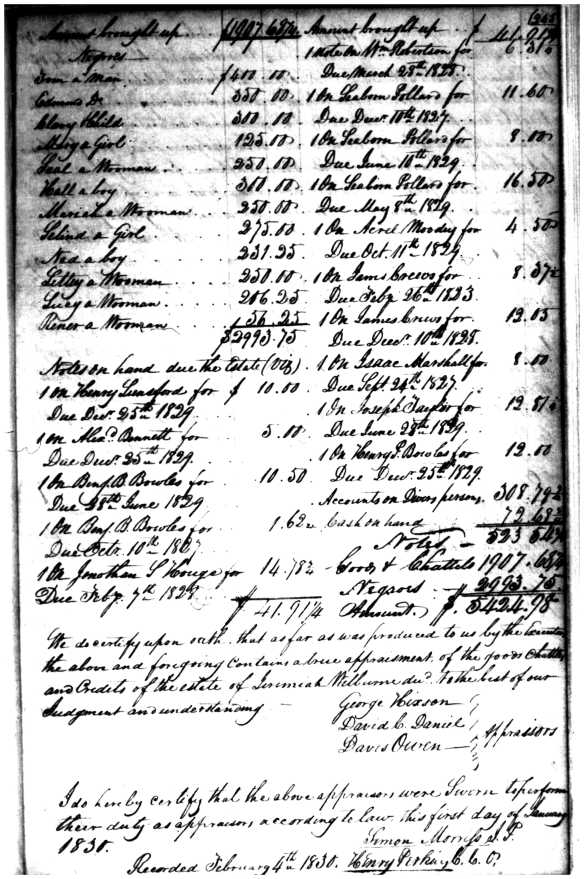 (255
Amount brought up $1907.68¾
Negroes
Tom a Man $400.00
Edmund Do 350.00
Mary & Child 300.00
a Girl 125.00
a Wooman 250.00
Hall a boy 300.00
Mariah a Wooman 250.00
a Girl 275.00
Ned a boy 231.25
Letty a Wooman 250.00
Lucy a Wooman 206.25
a Wooman 56.25
$2993.75
Notes on hand due the Estate (Viz)
1 on Henry Lunsford for $ 10.00
Due Decr. 25th 1829
1 on Alexd. Bennett for 5.00
Due Decr. 25th 1829.
1 On Benj. B. Bowles for 10.50
Due 28th June 1829
1 On Benj. B. Bowles for 1.62½
Due Octr. 10th 1827
1 On Jonathan S for 14.78½
Due Feby. 7th 1828
$ 41.91¼
Amount brought up $ 41.91¼
1 note on Wm. Robertson for 6.31¼
Due March 25th 1828.
1 On Seaborn Pollard for 11.60
Due Decr. 10th 1827.
1 On Seaborn Pollard for 8.00
Due June 10th 1829.
1 On Seaborn Pollard for 16.50
Due May 8th 1829.
1 On Moodey for 4.50
Due Oct. 11th 1829
1 On Jams Crews for 8.37½
Due Feby 26th 1823
1 On James Crews for 12.05
Due Decr. 10th 1828.
1 On Isaac Marshall for 8.00
Due Sept. 24th 1827.
1 On Joseph for 12.81¼
Due June 28th 1829.
1 On Henry P. Bowles for 12.00
Due Decr. 25th 1829.
Accounts on Divers persons. 308.79½
Cash on hand 72.68½
Notes 523.54½
Goods & Chattels 1907.68¾
Negroes $ 2993.75
Amount. $ 5424.98
We do certify upon oath that as far as was produced to us by the Executor
the above and foregoing contains a true appraisment of the goods Chattles
and Credits of the estate of Jeremiah Wilburne decd. to the best of our
Judgment and understanding
George Hixson
David C. Daniel
Daves Owen
Appraisors
I do hereby certify that the above appraisors were Sworn to perform
their duty as appraisors according to law. this first day of January
1830.
Simon Morriss J. P.
Recorded February 4th 1830. Henry Perkins C. C. O.